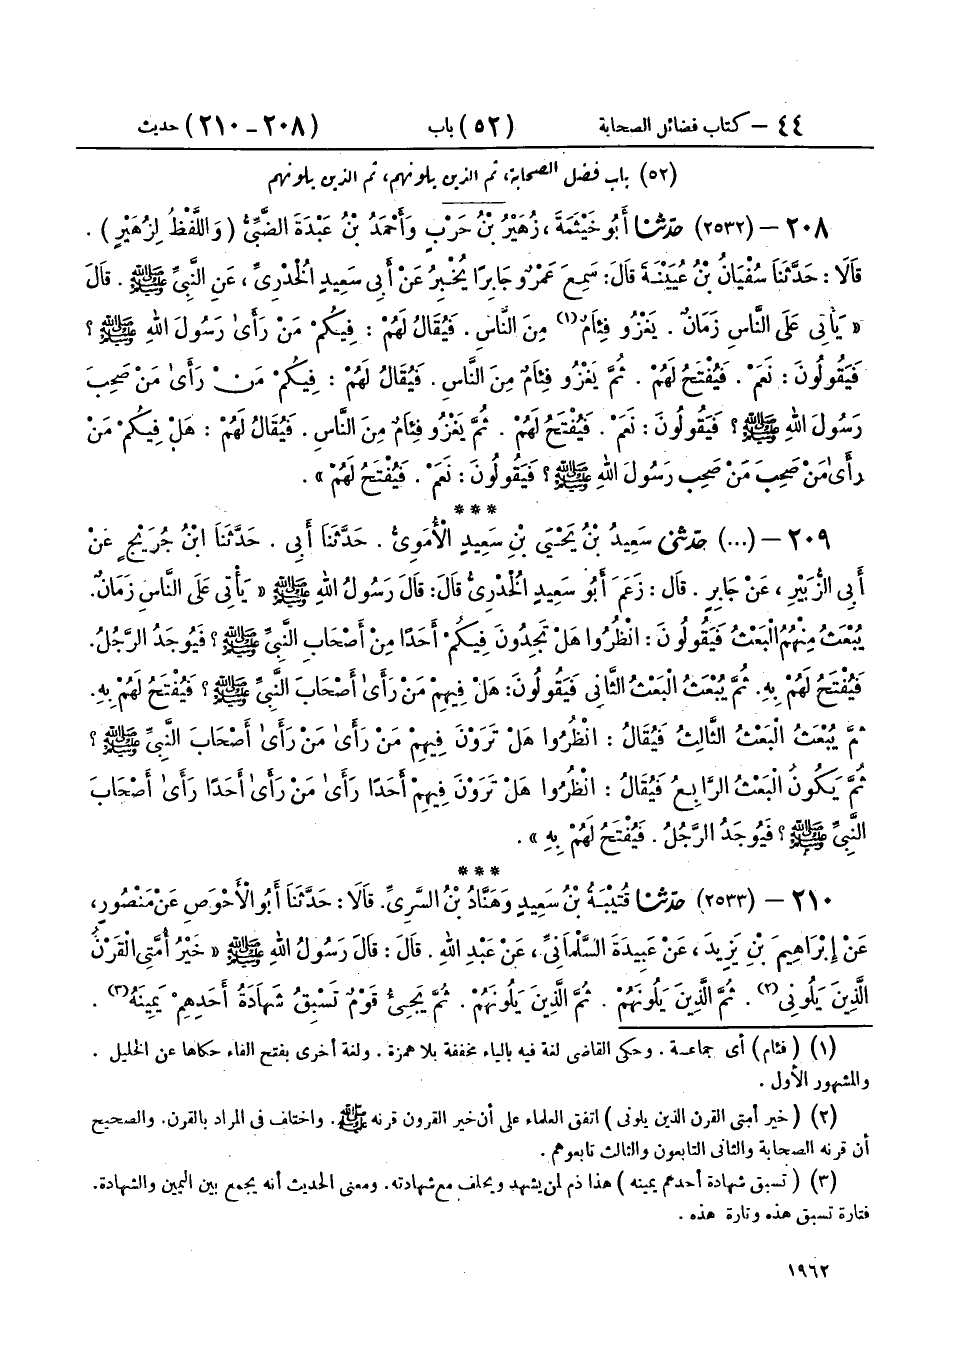 ٤٤ – كتاب فضائل الصحابة (٥٢) باب (٢٠٨ – ٢١٠) حديث
(٥٢) باب فضل الصحابة، ثم الذين يلونهم، ثم الذين يلونهم
٢٠٨ – (٢٥٣٢) حدثنا أَبُو خَيْثَمَةَ، زُهَيْرُ بْنُ حَرْبٍ وَأَحْمَدُ بْنُ عَبْدَةَ الضَّبِّىُّ (وَاللَّفْظُ لِزُهَيْرٍ).
قَالَا: حَدَّثَنَا سُفْيَانُ بْنُ عُيَيْنَةَ قَالَ: سَمِعَ عَمْرٌو جَابِرًا يُخْبِرُ عَنْ أَبِى سَعِيدٍ الْخُدْرِىِّ، عَنِ النَّبِىِّ ﷺ. قَالَ
« يَأْتِى عَلَى النَّاسِ زَمَانٌ. يَغْزُو فِئَامٌ(١) مِنَ النَّاسِ. فَيُقَالُ لَهُمْ: فِيكُمْ مَنْ رَأَىٰ رَسُولَ اللهِ ﷺ؟
فَيَقُولُونَ: نَعَمْ. فَيُفْتَحُ لَهُمْ. ثُمَّ يَغْزُو فِئَامٌ مِنَ النَّاسِ. فَيُقَالُ لَهُمْ: فِيكُمْ مَنْ رَأَىٰ مَنْ صَحِبَ
رَسُولَ اللهِ ﷺ؟ فَيَقُولُونَ: نَعَمْ. فَيُفْتَحُ لَهُمْ. ثُمَّ يَغْزُو فِئَامٌ مِنَ النَّاسِ. فَيُقَالُ لَهُمْ: هَلْ فِيكُمْ مَنْ
رَأَىٰ مَنْ صَحِبَ مَنْ صَحِبَ رَسُولَ اللهِ ﷺ؟ فَيَقُولُونَ: نَعَمْ. فَيُفْتَحُ لَهُمْ ».
***
٢٠٩ – (...) حدثنى سَعِيدُ بْنُ يَحْيَىٰ بْنِ سَعِيدٍ الْأُمَوِىُّ. حَدَّثَنَا أَبِى. حَدَّثَنَا ابْنُ جُرَيْجٍ عَنْ
أَبِى الزُّبَيْرِ، عَنْ جَابِرٍ. قَالَ: زَعَمَ أَبُو سَعِيدٍ الْخُدْرِىُّ قَالَ: قَالَ رَسُولُ اللهِ ﷺ « يَأْتِى عَلَى النَّاسِ زَمَانٌ.
يُبْعَثُ مِنْهُمُ الْبَعْثُ فَيَقُولُونَ: انْظُرُوا هَلْ تَجِدُونَ فِيكُمْ أَحَدًا مِنْ أَصْحَابِ النَّبِىِّ ﷺ؟ فَيُوجَدُ الرَّجُلُ.
فَيُفْتَحُ لَهُمْ بِهِ. ثُمَّ يُبْعَثُ الْبَعْثُ الثَّانِى فَيَقُولُونَ: هَلْ فِيهِمْ مَنْ رَأَىٰ أَصْحَابَ النَّبِىِّ ﷺ؟ فَيُفْتَحُ لَهُمْ بِهِ.
ثُمَّ يُبْعَثُ الْبَعْثُ الثَّالِثُ فَيُقَالُ: انْظُرُوا هَلْ تَرَوْنَ فِيهِمْ مَنْ رَأَىٰ مَنْ رَأَىٰ أَصْحَابَ النَّبِىِّ ﷺ؟
ثُمَّ يَكُونُ الْبَعْثُ الرَّابِعُ فَيُقَالُ: انْظُرُوا هَلْ تَرَوْنَ فِيهِمْ أَحَدًا رَأَىٰ مَنْ رَأَىٰ أَحَدًا رَأَىٰ أَصْحَابَ
النَّبِىِّ ﷺ؟ فَيُوجَدُ الرَّجُلُ. فَيُفْتَحُ لَهُمْ بِهِ ».
***
٢١٠ – (٢٥٣٣) حدثنا قُتَيْبَةُ بْنُ سَعِيدٍ وَهَنَّادُ بْنُ السَّرِىِّ. قَالَا: حَدَّثَنَا أَبُو الْأَحْوَصِ عَنْ مَنْصُورٍ،
عَنْ إِبْرَاهِيمَ بْنِ يَزِيدَ، عَنْ عَبِيدَةَ السَّلْمَانِىِّ، عَنْ عَبْدِ اللهِ. قَالَ: قَالَ رَسُولُ اللهِ ﷺ « خَيْرُ أُمَّتِى الْقَرْنُ
الَّذِينَ يَلُونِى(٢). ثُمَّ الَّذِينَ يَلُونَهُمْ. ثُمَّ الَّذِينَ يَلُونَهُمْ. ثُمَّ يَجِىءُ قَوْمٌ تَسْبِقُ شَهَادَةُ أَحَدِهِمْ يَمِينَهُ(٣).
(١) (فئام) أى جماعة. وحكى القاضى لغة فيه بالياء مخففة بلا همزة. ولغة أخرى بفتح الفاء حكاها عن الخليل.
والمشهور الأول.
(٢) (خير أمتى القرن الذين يلونى) اتفق العلماء على أن خير القرون قرنه ﷺ. واختلف فى المراد بالقرن. والصحيح
أن قرنه الصحابة والثانى التابعون والثالث تابعوهم.
(٣) (تسبق شهادة أحدهم يمينه) هذا ذم لمن يشهد ويحلف مع شهادته. ومعنى الحديث أنه يجمع بين اليمين والشهادة.
فتارة تسبق هذه وتارة هذه.
١٩٦٢